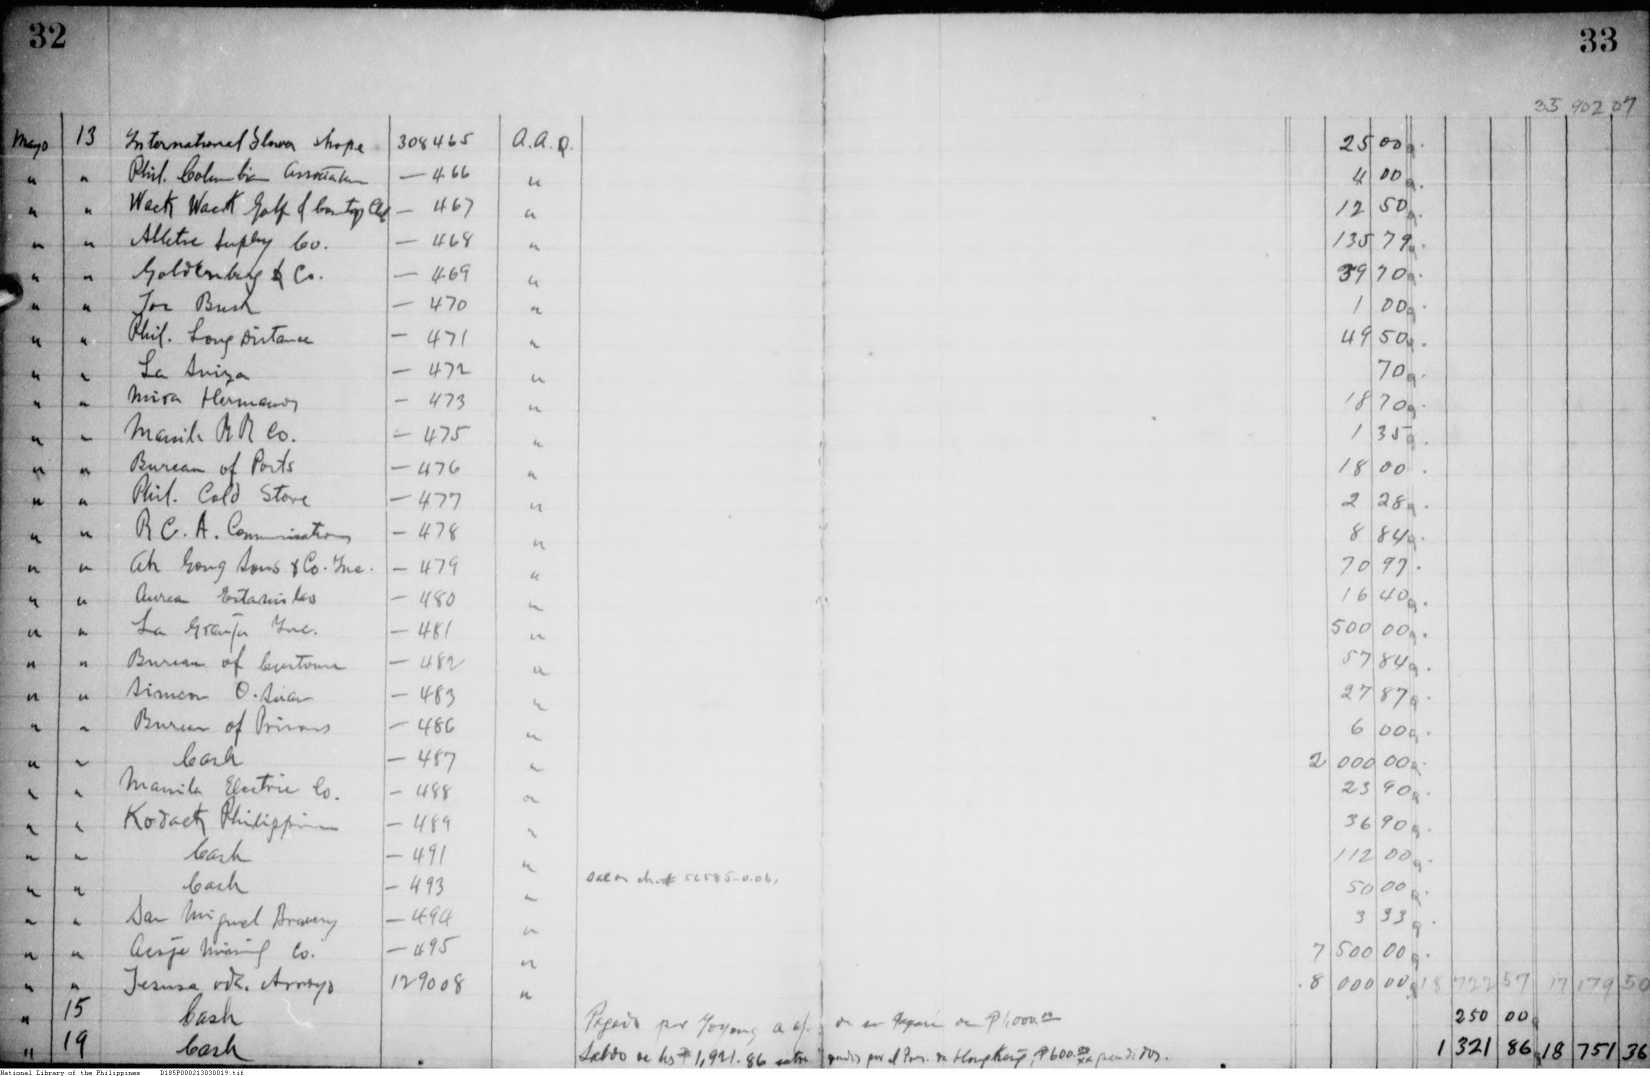 32
33
35 902 07
Mayo 13 International Flower Shope 308465 A.A.Q. 25 00
" " Phil. Columbian Association — 466 " 4 00
" " Wack Wack Golf & Country Club — 467 " 12 50
" " Athletic Supply Co. — 468 " 135 79
" " Goldenberg & Co. — 469 " 39 70
" " Joe Bush — 470 " 1 00
" " Phil. Long Distance — 471 " 49 50
" " La Suiza — 472 " 70
" " Mira Hermanos — 473 " 18 70
" " Manila RR Co. — 475 " 1 35
" " Bureau of Posts — 476 " 18 00
" " Phil. Cold Store — 477 " 2 28
" " R.C.A. Communications — 478 " 8 84
" " Ah Gong Sons & Co. Inc. — 479 " 70 97
" " Aurea Estanislao — 480 " 16 40
" " La Granja Inc. — 481 " 500 00
" " Bureau of Customs — 482 " 57 84
" " Simeon O. — 483 " 27 87
" " Bureau of Prisons — 486 " 6 00
" " Cash — 487 " 2 000 00
" " Manila Electric Co. — 488 " 23 90
" " Kodack Philippines — 489 " 36 90
" " Cash — 491 " 112 00
" " Cash — 493 " 50 00
" " San Miguel Brewery — 494 " 3 33
" " Acoje Mining Co. — 495 " 7 500 00
" " Jesusa vda. Arroyo 129008 " 8 000 00 18 722 57 17 179 50
" 15 Cash Pagado por Yoyong a de su de ₱1,000.00 250 00
" 19 Cash Saldo de los ₱1,921.86 por el Pres. en Hongkong, ₱600.00 perdidos. 1 321 86 18 751 36
National Library of the Philippines D185P000213030019.tif